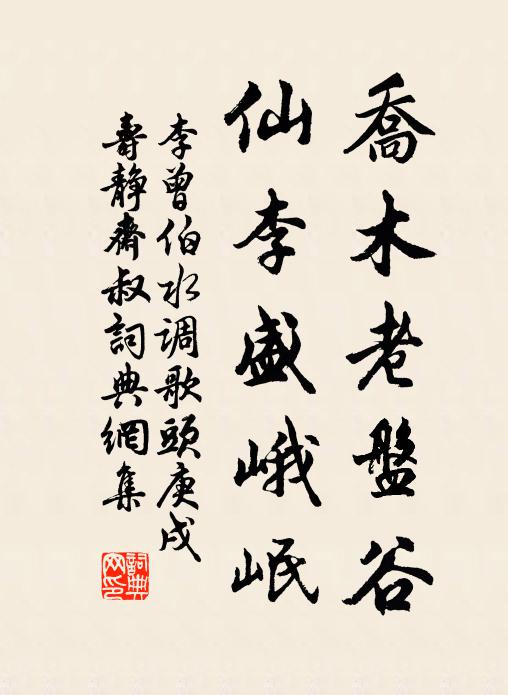 喬木老盤谷
仙李盛峨岷
李曾伯水调歌頭庚戌
壽靜齋叔詞典網集
詞典网印